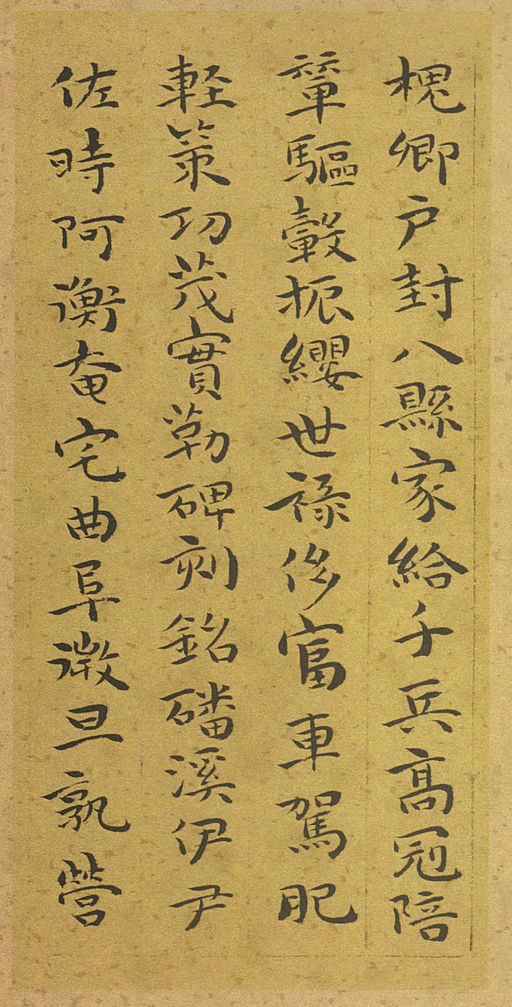 槐卿户封八縣家給千兵高冠陪
輦驅轂振纓世祿侈富車駕肥
輕策功茂實勒碑刻銘磻溪伊尹
佐時阿衡奄宅曲阜微旦孰營